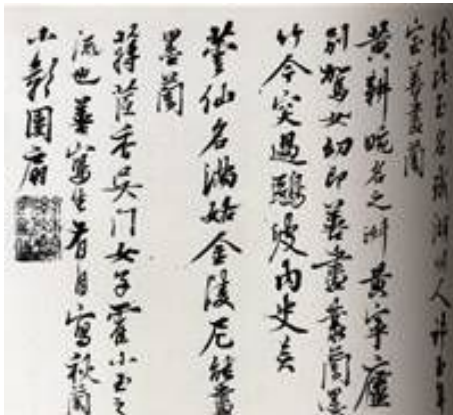 玉名湖州人許玉年
室善畫蘭
黃耕畹名之淑黃宰廬
別駕女幼即善畫叢蘭墨
竹今突過鷗波內史矣
仙名滿姑金陵尼能畫
墨蘭
蔣香吳門女子霍小玉之
流也善寫生者自寫秋蘭
小影團扇